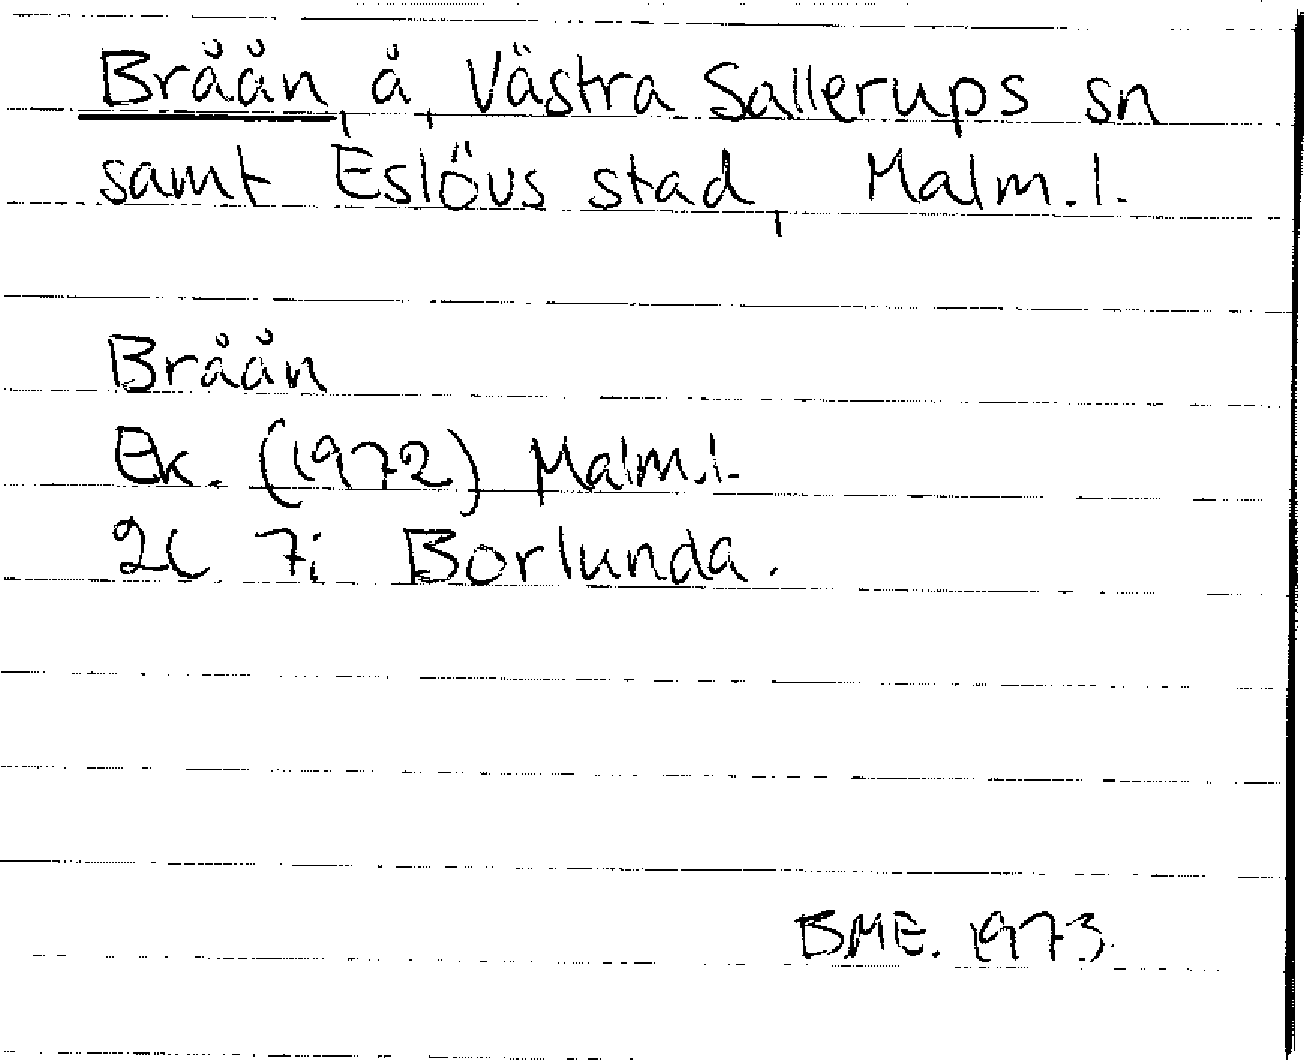 Bråån, å, Västra Sallerups sn
samt Eslövs stad, Malm.l.
Bråån
Ek. (1972) Malm.l.
2C 7i Borlunda.
BME. 1973.